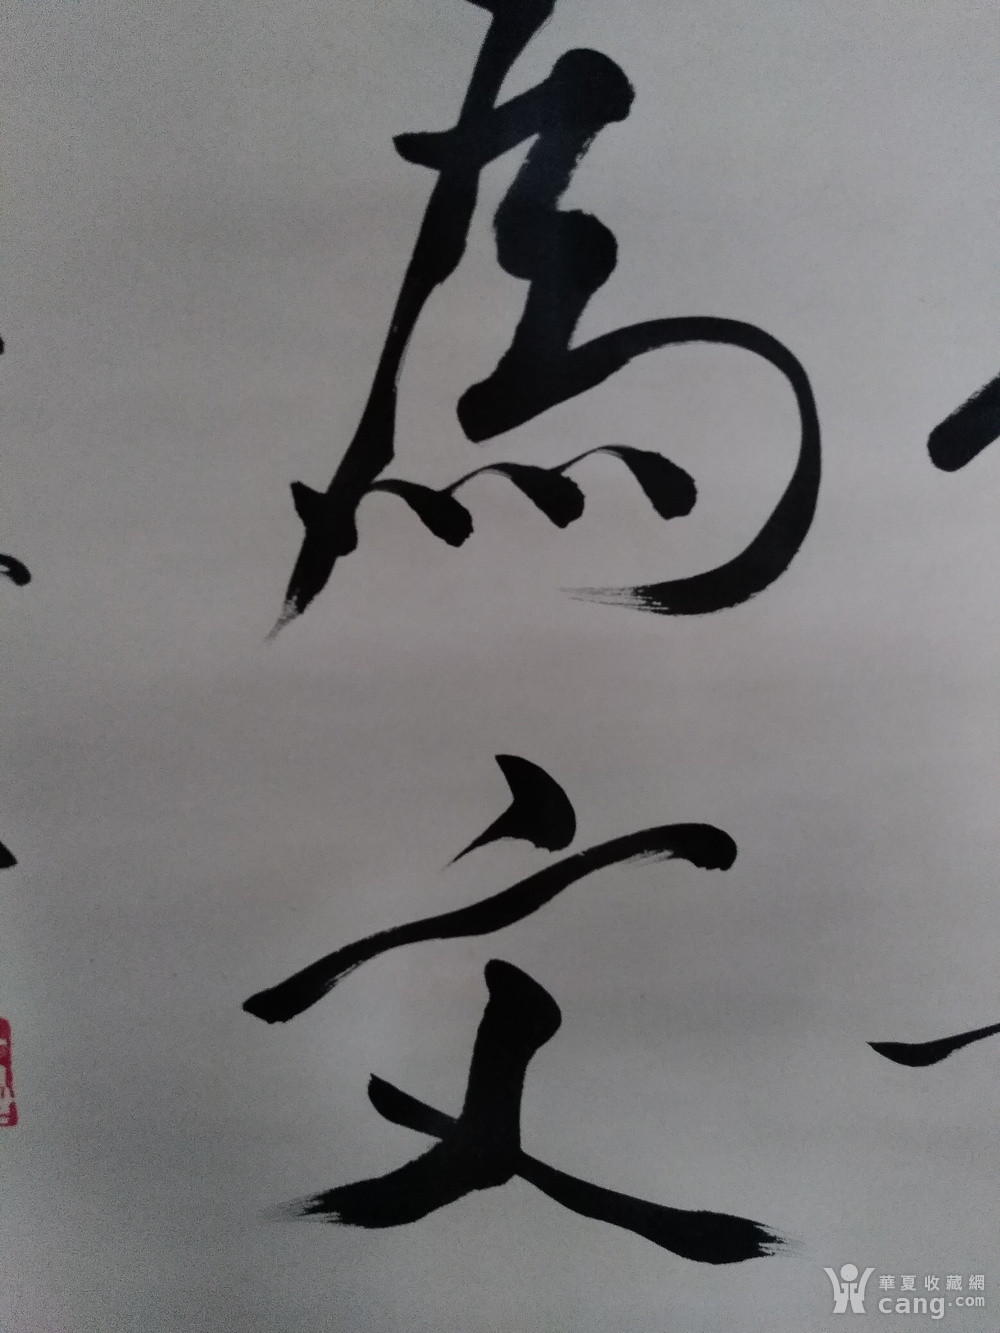 為
文
華夏收藏網
cang.com